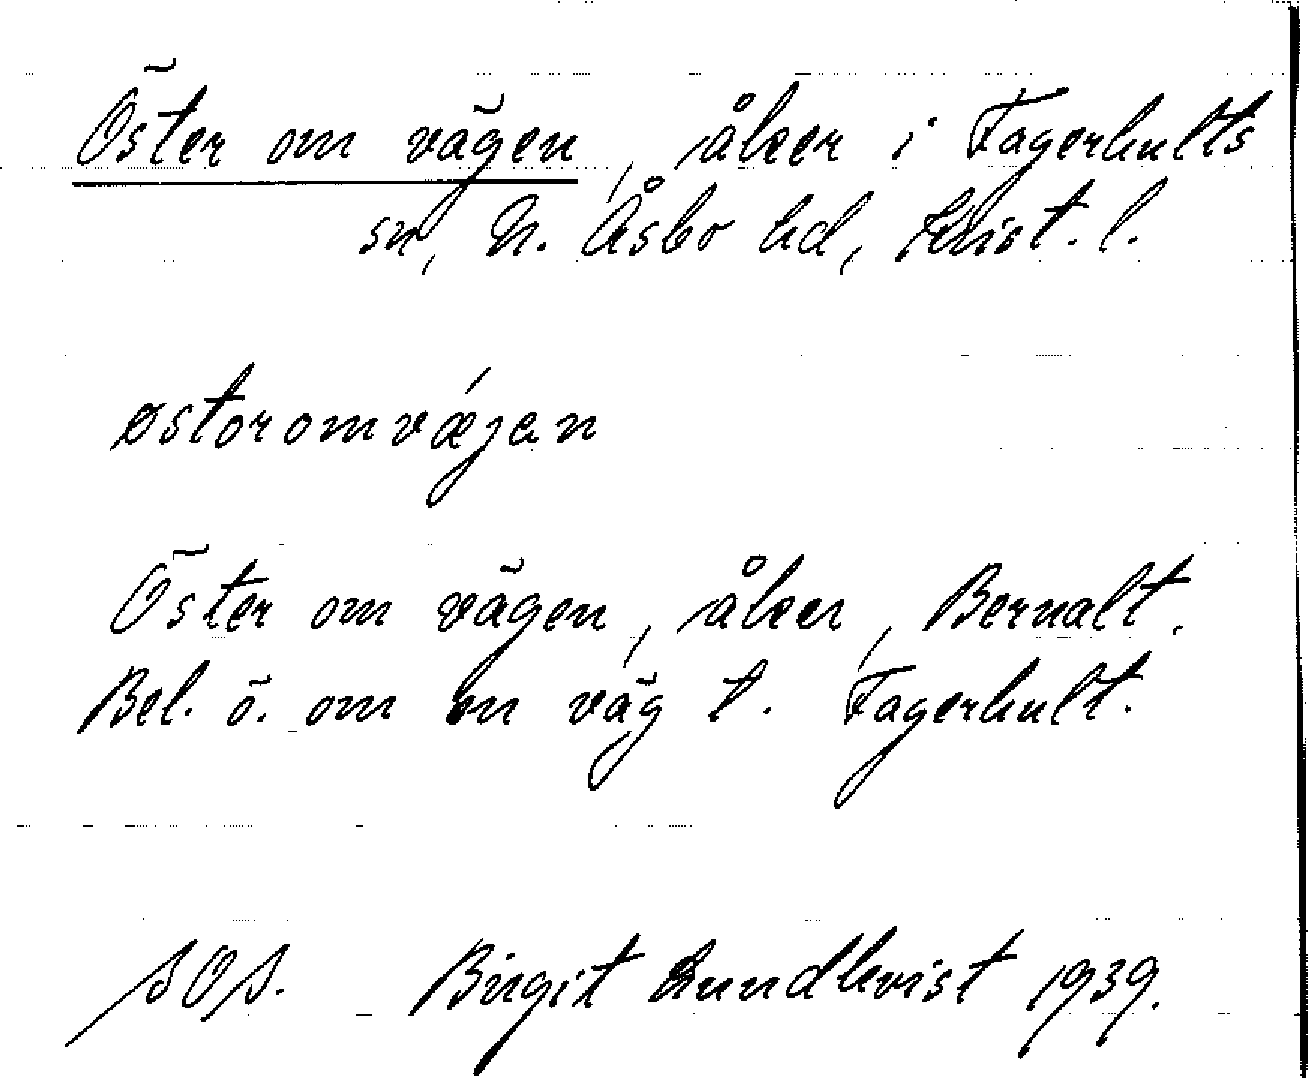 Öster om vägen, åker i Fagerhults
sn, N. Åsbo hd, Krist. l.
østoromvǽjen
Öster om vägen, åker, Bernalt.
Bel. ö. om en väg t. Fagerhult.
SOS. Birgit Lundkvist 1939.